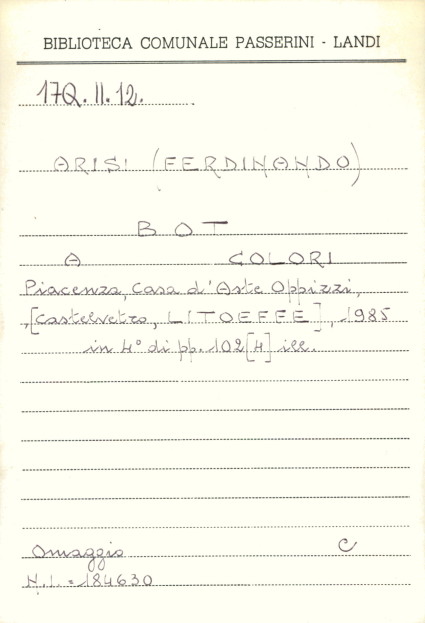 BIBLIOTECA COMUNALE PASSERINI - LANDI
17Q.II.12.
ARISI (FERDINANDO)
BOT
A COLORI
Piacenza, Casa d'Arte Oppizzi,
,[Castelvetro, LITOEFFE], 1985
in 4° di pp. 102[4] ill.
Omaggio C
N.I. = 184630